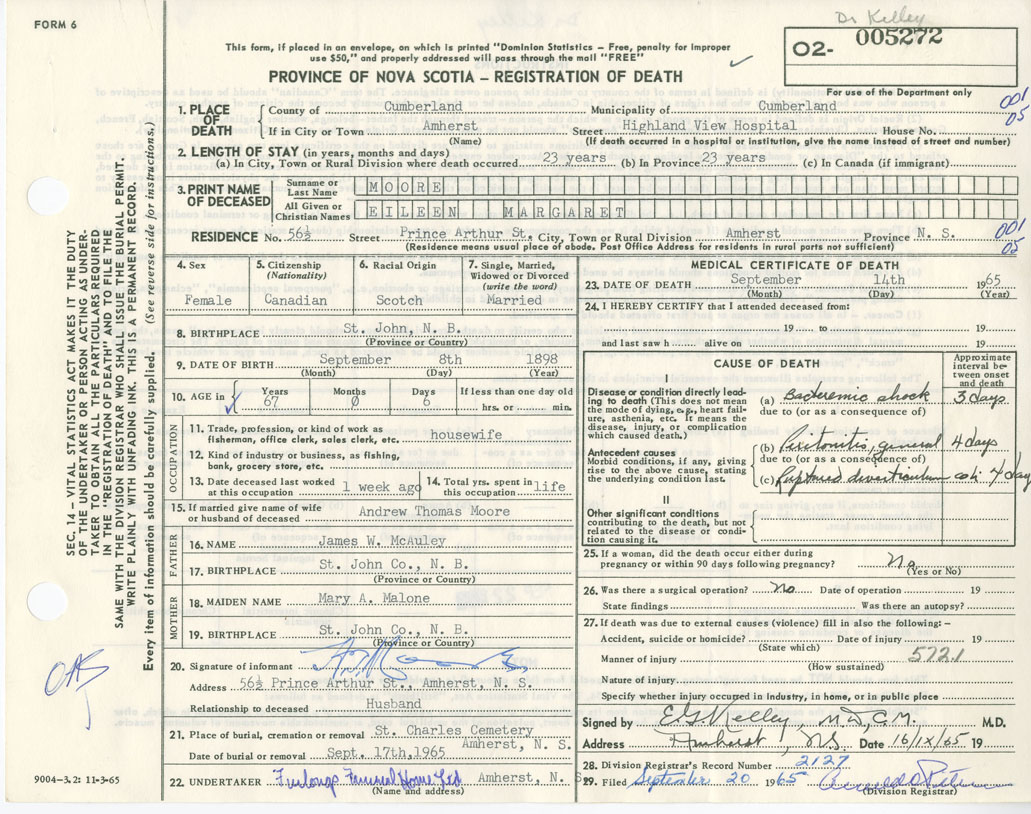 FORM 6
Dr Kelley
O2- 005272
This form, if placed in an envelope, on which is printed "Dominion Statistics – Free, penalty for improper
use $50," and properly addressed will pass through the mail "FREE"
PROVINCE OF NOVA SCOTIA – REGISTRATION OF DEATH
For use of the Department only
001
05
1. PLACE OF DEATH
County of Cumberland Municipality of Cumberland
If in City or Town Amherst Street Highland View Hospital House No.
(Name) (If death occurred in a hospital or institution, give the name instead of street and number)
2. LENGTH OF STAY (in years, months and days)
(a) In City, Town or Rural Division where death occurred 23 years (b) In Province 23 years (c) In Canada (if immigrant)
3. PRINT NAME OF DECEASED
Surname or Last Name MOORE
All Given or Christian Names EILEEN MARGARET
RESIDENCE No. 56½ Street Prince Arthur St., City, Town or Rural Division Amherst Province N. S.
(Residence means usual place of abode. Post Office Address for residents in rural parts not sufficient)
001
05
4. Sex
Female
5. Citizenship
(Nationality)
Canadian
6. Racial Origin
Scotch
7. Single, Married,
Widowed or Divorced
(write the word)
Married
8. BIRTHPLACE St. John, N. B.
(Province or Country)
9. DATE OF BIRTH September 8th 1898
(Month) (Day) (Year)
10. AGE in
Years 67
Months 0
Days 6
If less than one day old
hrs. or min.
OCCUPATION
11. Trade, profession, or kind of work as
fisherman, office clerk, sales clerk, etc. housewife
12. Kind of industry or business, as fishing,
bank, grocery store, etc.
13. Date deceased last worked
at this occupation 1 week ago
14. Total yrs. spent in
this occupation life
15. If married give name of wife
or husband of deceased Andrew Thomas Moore
FATHER
16. NAME James W. McAuley
17. BIRTHPLACE St. John Co., N. B.
(Province or Country)
MOTHER
18. MAIDEN NAME Mary A. Malone
19. BIRTHPLACE St. John Co., N. B.
(Province or Country)
20. Signature of informant
Address 56½ Prince Arthur St., Amherst, N. S.
Relationship to deceased Husband
21. Place of burial, cremation or removal St. Charles Cemetery
Amherst, N. S.
Date of burial or removal Sept. 17th,1965
22. UNDERTAKER Furlongs Funeral Home Ltd Amherst, N. S
(Name and address)
MEDICAL CERTIFICATE OF DEATH
23. DATE OF DEATH September 14th 1965
(Month) (Day) (Year)
24. I HEREBY CERTIFY that I attended deceased from:
19 to 19
and last saw h alive on 19
CAUSE OF DEATH
Approximate
interval be-
tween onset
and death
I
Disease or condition directly lead-
ing to death (This does not mean
the mode of dying, e.g., heart fail-
ure, asthenia, etc. It means the
disease, injury, or complication
which caused death.)
(a) Bacteremic shock 3 days
due to (or as a consequence of)
Antecedent causes
Morbid conditions, if any, giving
rise to the above cause, stating
the underlying condition last.
(b) Peritonitis, general 4 days
due to (or as a consequence of)
(c) Ruptured diverticulum coli 4 days
II
Other significant conditions
contributing to the death, but not
related to the disease or condi-
tion causing it.
25. If a woman, did the death occur either during
pregnancy or within 90 days following pregnancy? No
(Yes or No)
26. Was there a surgical operation? No Date of operation 19
State findings Was there an autopsy?
27. If death was due to external causes (violence) fill in also the following: –
Accident, suicide or homicide? Date of injury 19
(State which)
Manner of injury 572.1
(How sustained)
Nature of injury
Specify whether injury occurred in industry, in home, or in public place
Signed by E G Kelley, M.D., C.M. M.D.
Address Amherst, N.S. Date 16/IX/65 19
28. Division Registrar's Record Number 2127
29. Filed September 20 1965
(Division Registrar)
SEC. 14 – VITAL STATISTICS ACT MAKES IT THE DUTY
OF THE UNDERTAKER OR PERSON ACTING AS UNDER-
TAKER TO OBTAIN ALL THE PARTICULARS REQUIRED
IN THE "REGISTRATION OF DEATH" AND TO FILE THE
SAME WITH THE DIVISION REGISTRAR WHO SHALL ISSUE THE BURIAL PERMIT.
WRITE PLAINLY WITH UNFADING INK. THIS IS A PERMANENT RECORD.
Every item of information should be carefully supplied. (See reverse side for instructions.)
9004-3.2: 11-3-65